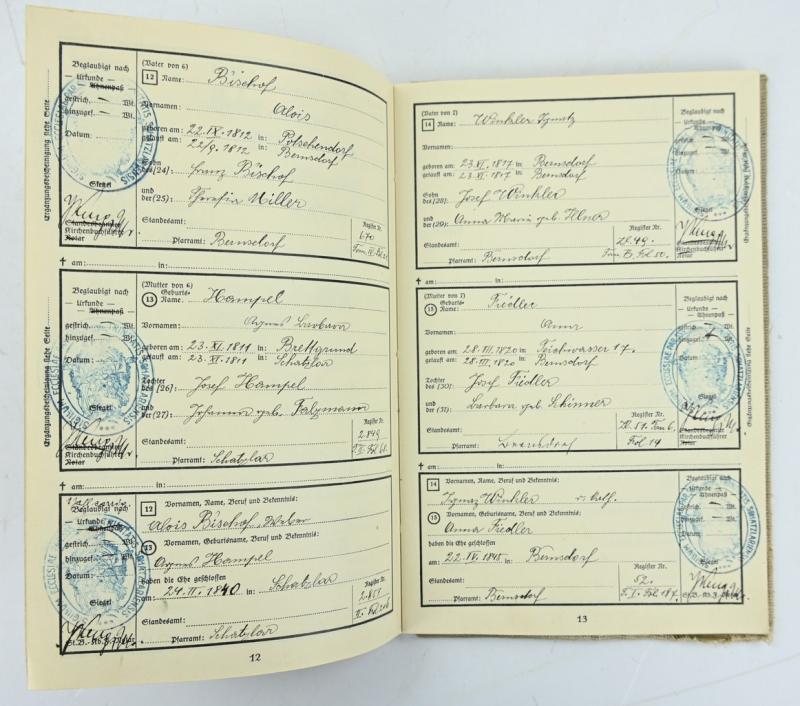 Ergänzungsbescheinigung siehe Seite
Beglaubigt nach
— Urkunde —
— Ahnenpaß
gestrich. Wt.
hinzugef. Wt.
Datum:
Siegel
Standesbeamter
Kirchenbuchführer
Notar
(Vater von 6)
12 Name: Bischof
Vornamen: Alois
geboren am: 22.IX.1812 in: Potschendorf
getauft am: 22/9.1812 in: Bernsdorf
Sohn des (24): Franz Bischof
und der (25): Theresia Miller
Standesamt:
Pfarramt: Bernsdorf
Register Nr.
670
† am: in:
Ergänzungsbescheinigung siehe Seite
Beglaubigt nach
— Urkunde —
— Ahnenpaß
gestrich. Wt.
hinzugef. Wt.
Datum:
Siegel
Standesbeamter
Kirchenbuchführer
Notar
(Mutter von 6)
13 Geburts-Name: Hampel
Vornamen: Agnes Barbara
geboren am: 23.XI.1811 in: Brettgrund
getauft am: 23.XI.1811 in: Schatzlar
Tochter des (26): Josef Hampel
und der (27): Johanna geb. Falzmann
Standesamt:
Pfarramt: Schatzlar
Register Nr.
2.849
† am: in:
Beglaubigt nach
— Urkunde
Ahnenpaß
gestrich. Wt.
hinzugef. Wt.
Datum:
Siegel
12 Vornamen, Name, Beruf und Bekenntnis:
Alois Bischof, Weber
13 Vornamen, Geburtsname, Beruf und Bekenntnis:
Agnes Hampel
haben die Ehe geschlossen
am: 24.II.1840 in: Schatzlar
Standesamt:
Pfarramt: Schatzlar
Register Nr.
2.851
12
(Vater von 7)
14 Name: Winkler Ignatz
Vornamen:
geboren am: 23.VI.1817 in: Bernsdorf
getauft am: 23.VI.1817 in: Bernsdorf
Sohn des (28): Josef Winkler
und der (29): Anna Maria geb. Illner
Standesamt:
Pfarramt: Bernsdorf
Register Nr.
Beglaubigt nach
— Urkunde —
— Ahnenpaß
gestrich. Wt.
hinzugef. Wt.
Datum:
Siegel
Standesbeamter
Kirchenbuchführer
Notar
Ergänzungsbescheinigung siehe Seite
† am: in:
(Mutter von 7)
15 Geburts-Name: Fiedler
Vornamen: Anna
geboren am: 28.III.1820 in: Tichwasser 17.
getauft am: 28.III.1820 in: Bernsdorf
Tochter des (30): Josef Fiedler
und der (31): Barbara geb. Schinner
Standesamt:
Pfarramt: Bernsdorf
Register Nr.
Fol 14
Beglaubigt nach
— Urkunde —
— Ahnenpaß
gestrich. Wt.
hinzugef. Wt.
Datum:
Siegel
Standesbeamter
Kirchenbuchführer
Notar
Ergänzungsbescheinigung siehe Seite
† am: in:
14 Vornamen, Name, Beruf und Bekenntnis:
Ignaz Winkler r. kath.
15 Vornamen, Geburtsname, Beruf und Bekenntnis:
Anna Fiedler
haben die Ehe geschlossen
am: 22.IV.1845 in: Bernsdorf
Standesamt:
Pfarramt: Bernsdorf
Register Nr.
52.
Beglaubigt nach
— Urkunde —
— Ahnenpaß
gestrich. Wt.
hinzugef. Wt.
Datum:
Siegel
13